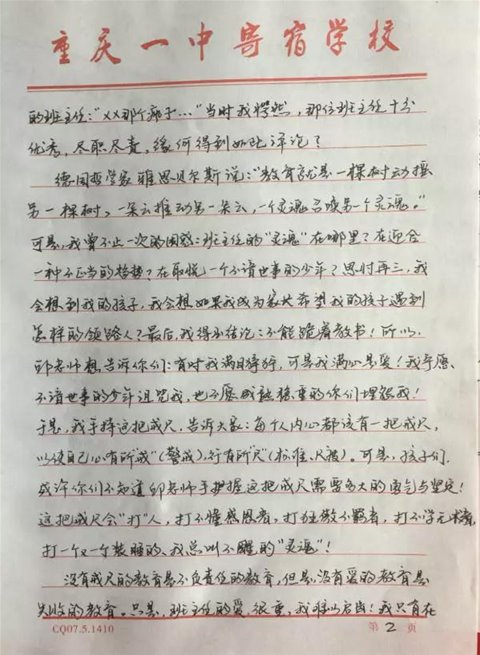 重庆一中寄宿学校
的班主任："××那个疯子…"当时我愕然，那位班主任十分
优秀，尽职尽责，缘何得到如此评论？
德国哲学家雅思贝尔斯说："教育就是一棵树动摇
另一棵树，一朵云推动另一朵云，一个灵魂召唤另一个灵魂。"
可是，我曾不止一次的困惑：班主任的"灵魂"在哪里？在迎合
一种不正当的趋势？在取悦一个不谙世事的少年？思忖再三，我
会想到我的孩子，我会想如果我成为家长希望我的孩子遇到
怎样的领路人？最后，我得出结论：不能跪着教书！所以，
邱老师想告诉你们：有时我满目狰狞，可是我满心是爱！我宁愿
不谙世事的少年诅咒我，也不愿成熟稳重的你们埋怨我！
于是，我手捧这把戒尺，告诉大家：每个人内心都该有一把戒尺，
以使自己心有所"戒"（警戒），行有所"尺"（标准、尺度）。可是，孩子们，
或许你们不知道邱老师手握这把戒尺需要多大的勇气与坚定！
这把戒尺会"打"人，打不懂感恩者，打狂傲不羁者，打不学无术者，
打一个又一个装睡的、我总叫不醒的"灵魂"！
没有戒尺的教育是不负责任的教育，但是，没有爱的教育是
失败的教育。只是，班主任的爱，很重，我难以启齿！我只有在
CQ07.5.1410 第 2 页